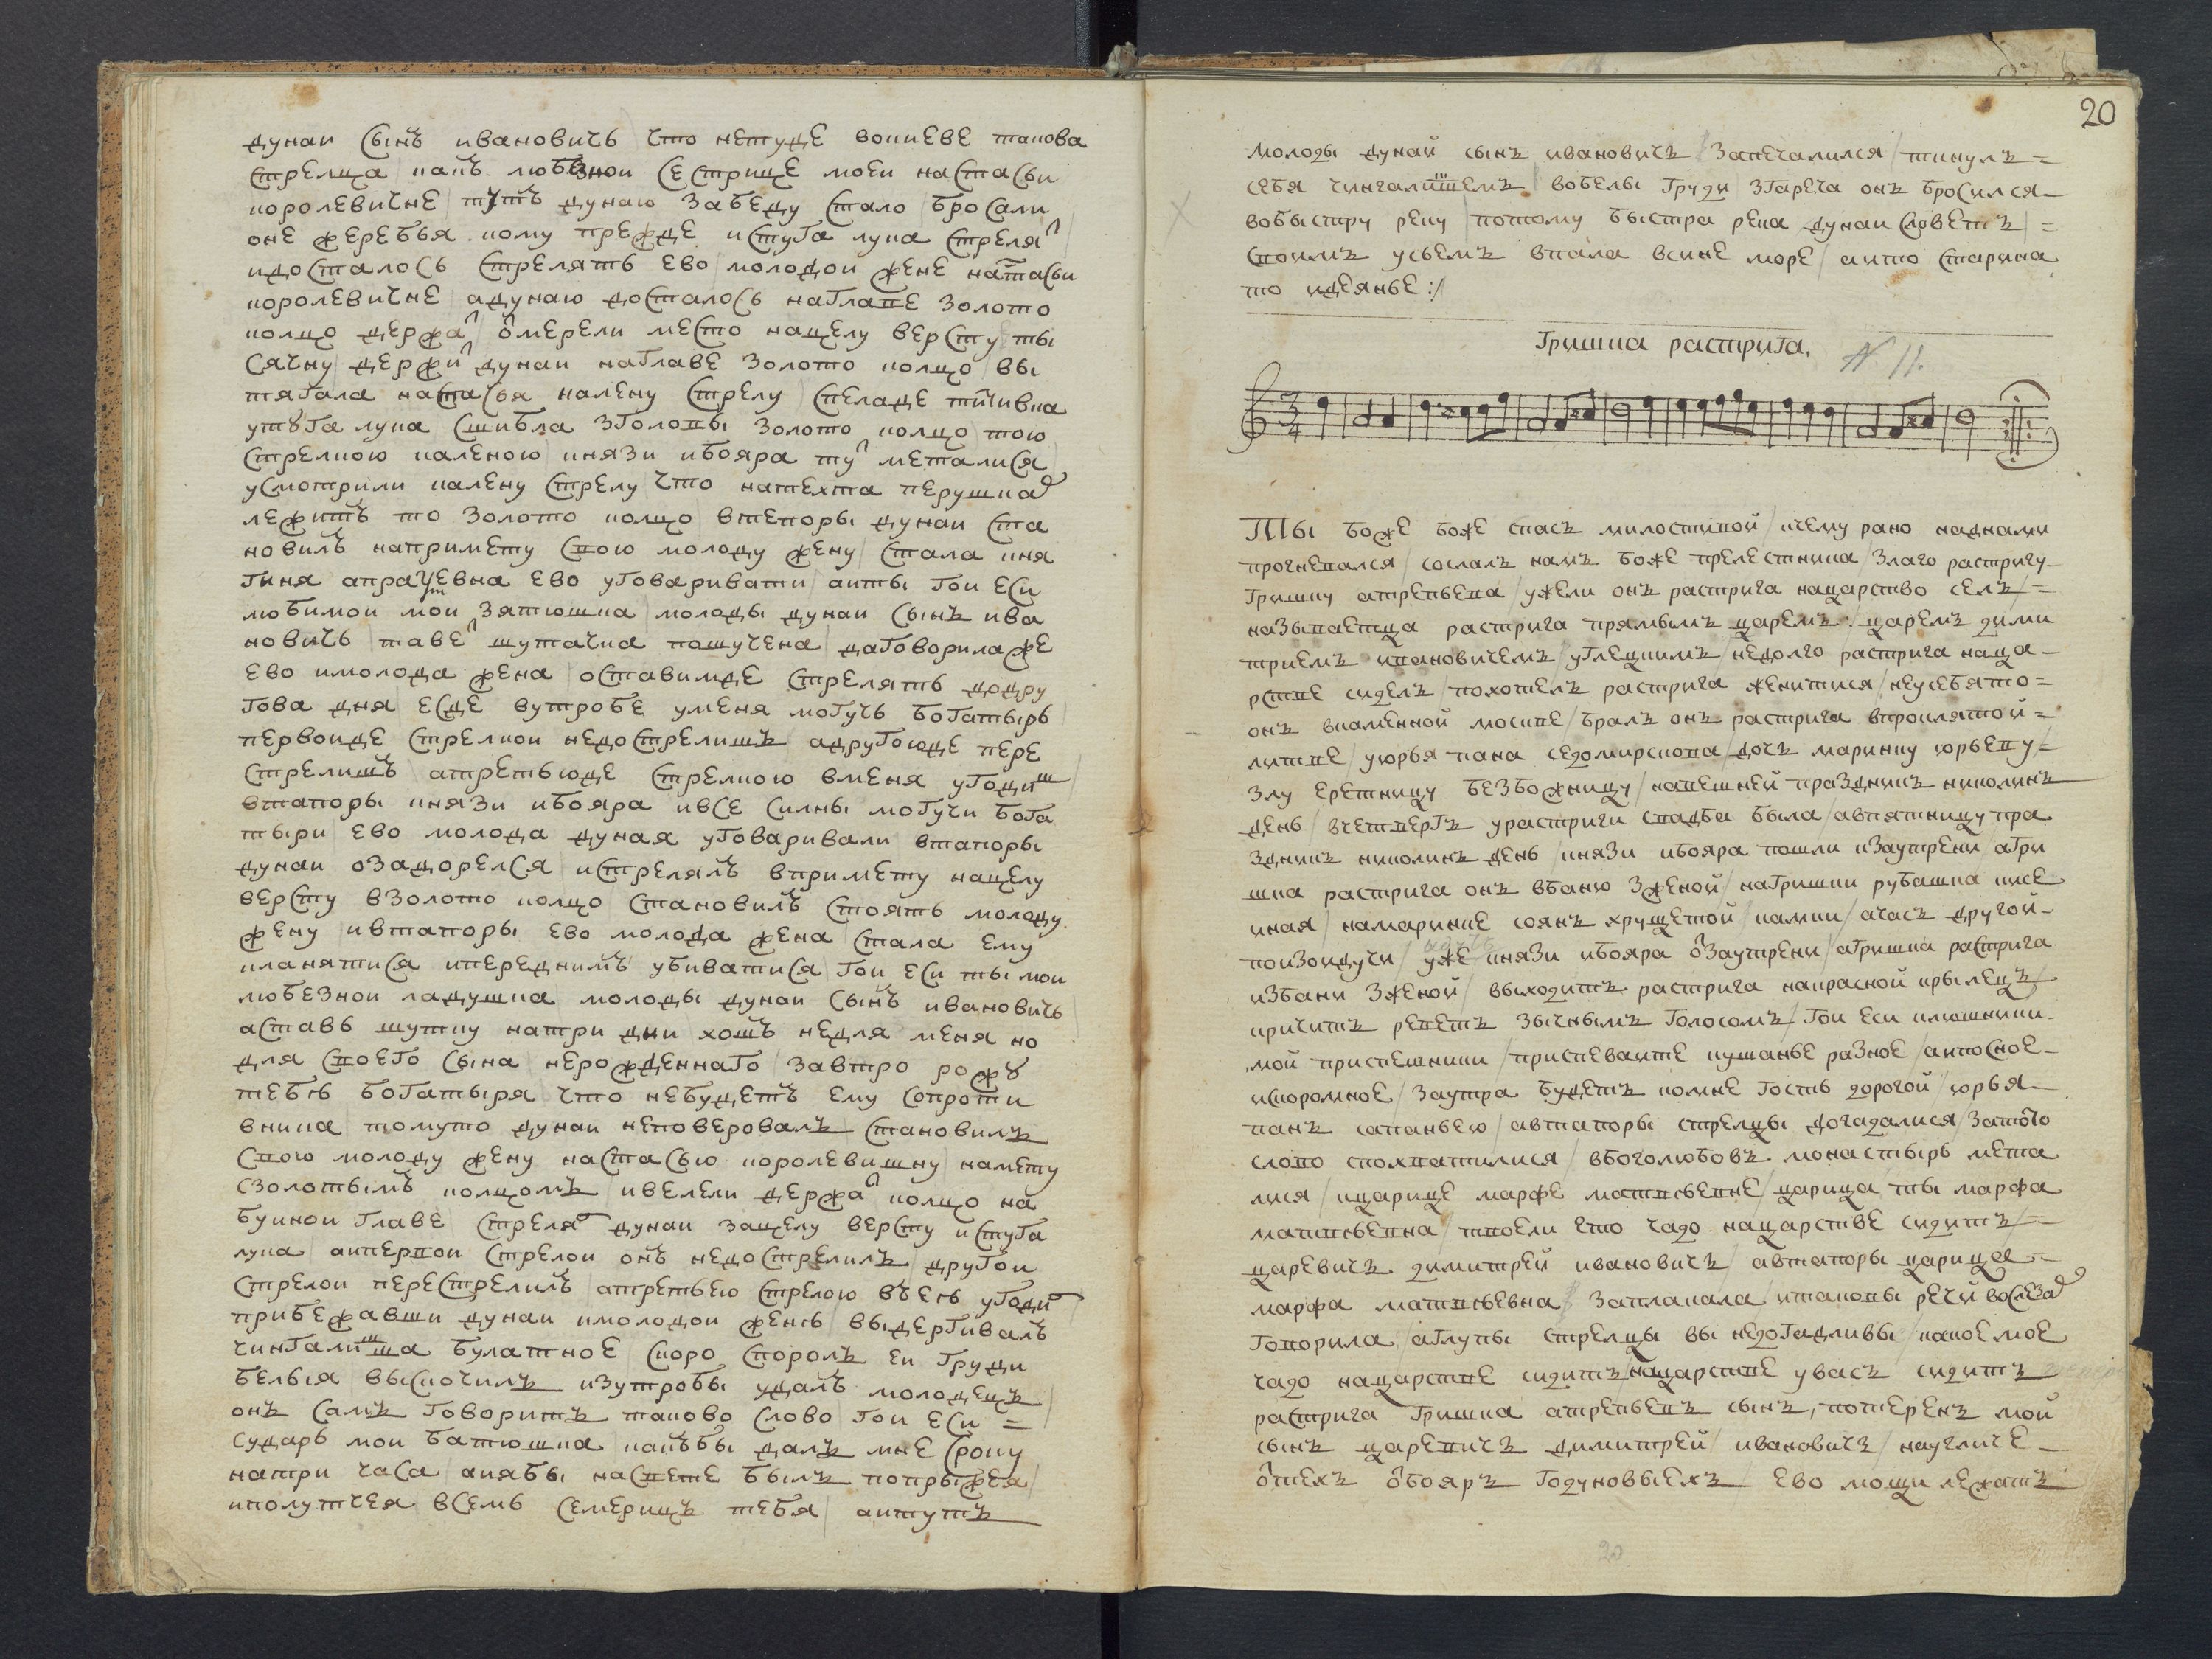 дунаи сынъ ивановичь что нетуде вокиеве такова
стрелца какъ любезнои сестрице моеи настасьи
королевичне тутъ дунаю забеду стало бросали
оне жеребья кому прежде истуга лука стреля
идосталось стрелять ево молодои жене настасьи
королевичне адунаю досталось наглаве золото
колцо держа ѿмерели место нацелу версту ты
сячну держи дунаи наглаве золото колцо вы
тягала настасья калену стрелу спеладе титивка
утуга лука сшибла зголовы золото колцо тою
стрелкою каленою князи ибояра ту металися
усмотрили калену стрелу что натехта перушка
лежитъ то золото колцо втепоры дунаи ста
новилъ напримету свою молоду жену стала кня
гиня апраѯевна ево уговаривати аиты гои еси
любимои мои зятюшка молоды дунаи сынъ ива
новичь таве шутачка пошучена даговорилаже
ево имолода жена оставимде стрелять додру
гова дня есде вутробе уменя могучь богатырь
первоиде стрелкои недострелишъ адругоюде пере
стрелишъ атретьюде стрелкою вменя угоди
втапоры князи ибояра ивсе силны могучи бога
тыри ево молода дуная уговаривали втапоры
дунаи озадорелся истрелялъ впримету нацелу
версту взолото колцо становилъ стоять молоду
жену ивтапоры ево молода жена стала ему
кланятися ипереднимъ убиватися гои еси ты мои
любезнои ладушка молоды дунаи сынъ ивановичь
аставь шутку натри дни хошъ недля меня но
для своего сына нерожденнаго завтро рожу
тебѣ богатыря что небудетъ ему сопроти
вника томуто дунаи неповеровалъ становилъ
свою молоду жену настасью королевишну намету
сзолотымъ колцомъ ивелели держа колцо на
буинои главе стреля дунаи зацелу версту истуга
лука аипервои стрелои онъ недострелилъ другои
стрелои перестрелилъ атретьею стрелою въеѣ угоди
прибежавши дунаи кмолодои женѣ выдергивалъ
чингалища булатное скоро споролъ еи груди
белыя выскочилъ изутробы удалъ молодецъ
онъ самъ говоритъ таково слово гои еси =
сударь мои батюшка какъбы далъ мне сроку
натри часа аиябы насвете былъ попрыжея
иполутчея всемь семерицъ тебя аитутъ
20
молоды дунай сынъ ивановичъ запечалился ткнулъ =
себя чингалищемъ вобелы груди згареча онъ бросился
вобыстру реку потому быстра река дунаи словетъ =
своимъ усьемъ впала всине море аито старина
то идеянье :/
Гришка растрига.
N 11.
Ты боже боже спасъ милостивой кчему рано наднами
прогневался сослалъ намъ боже прелестника злаго растригу
гришку атрепьева ужели онъ растрига нацарство селъ =
называетца растрига прямымъ царемъ: царемъ дими
триемъ ивановичемъ углецкимъ недолго растрига наца
рстве сиделъ похотелъ растрига женитися неусебято =
онъ вкаменной москве бралъ онъ растрига впроклятой =
литве уюрья пана седомирскова дочь маринку юрьеву =
злу еретницу безбожницу навешней праздникъ николинъ
день вчетвергъ урастриги свадба была авпятницу пра
здникъ николинъ день князи ибояра пошли кзаутрени агри
шка растрига онъ вбаню зженой нагришки рубашка кисе
иная намаринке соянъ хрущетой камки ачасъ другой
поизоидучи уже князи ибояра ѿзаутрени агришка растрига
избани зженой выходитъ растрига накрасной крылецъ
кричитъ реветъ зычнымъ голосомъ гои еси ключники
мой приспешники приспеваите кушанье разное аипосное
искоромное заутра будетъ комне гость дорогой юрья
панъ спаньею автапоры стрелцы догадалися затого
слово спохватилися вбоголюбовъ монастырь мета
лися кцарице марфе матвѣевне царица ты марфа
матвѣевна твоели ето чадо нацарстве сидитъ =
царевичъ димитрей ивановичъ автапоры царица =
марфа матвѣевна заплакала итаковы речи вослеза
говорила аглупы стрелцы вы недогадливы какое мое
чадо нацарстве сидитъ нацарстве увасъ сидитъ
растрига гришка атрепьевъ сынъ, потеренъ мой
сынъ царевичъ димитрей ивановичъ наугличе
ѿтехъ ѿбояръ годуновыехъ ево мощи лежатъ
20